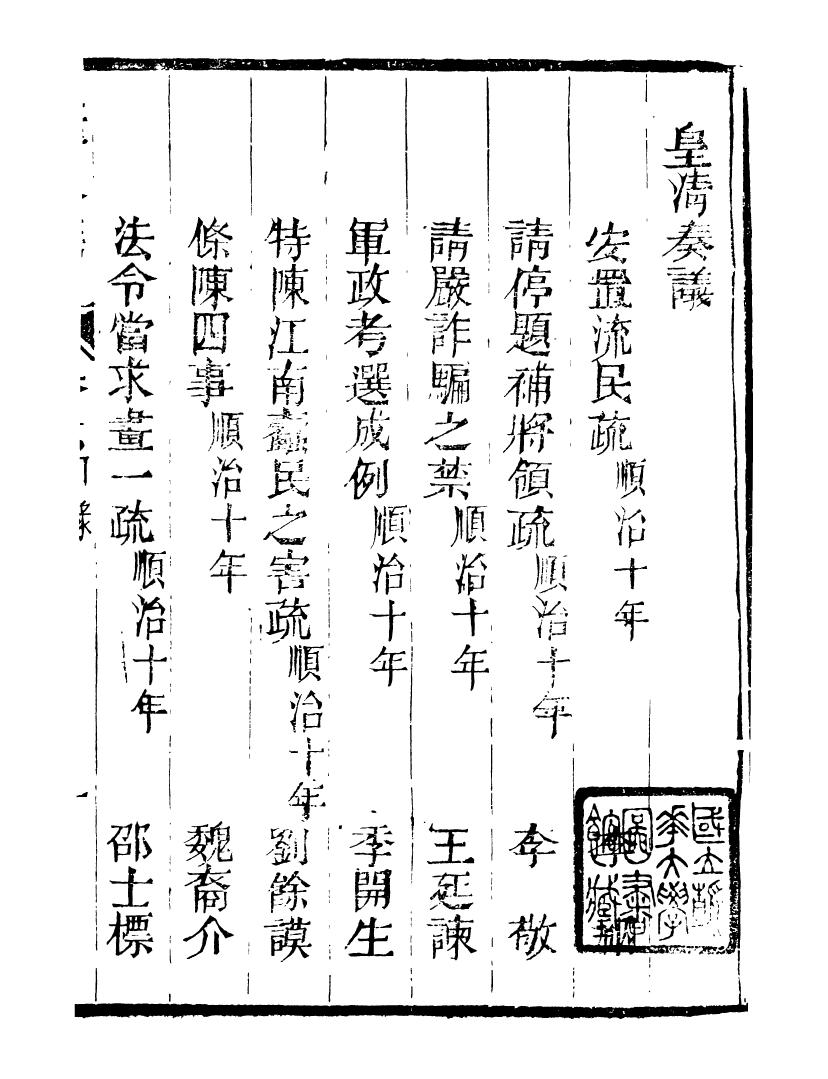 皇清奏議
安置流民疏順治十年
請停題補將領疏順治十年 李敬
請嚴詐騙之禁順治十年 王延諫
軍政考選成例順治十年 季開生
特陳江南蠹民之害疏順治十年 劉餘謨
條陳四事順治十年 魏裔介
法令當求畫一疏順治十年 邵士標
目錄
一
國立清華大學圖書館藏